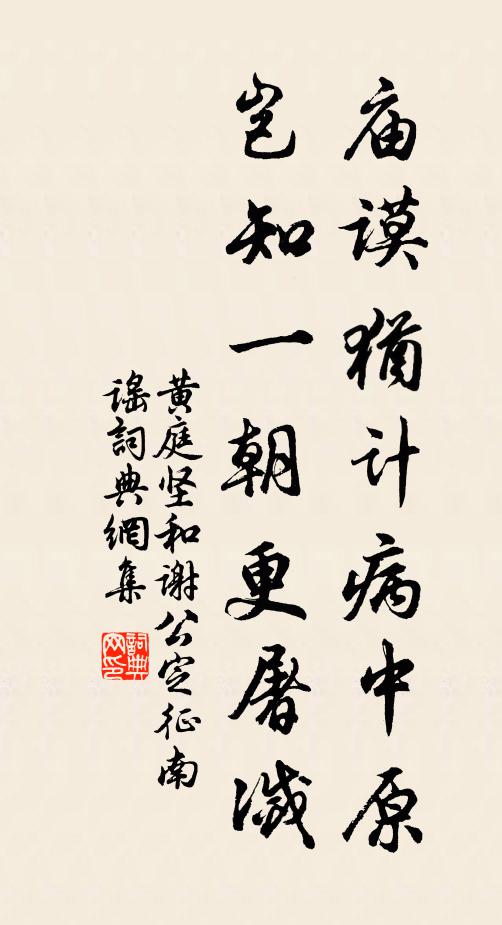 庙谟猶计病中原
岂知一朝更屠滅
黄庭坚和谢公定征南
谣詞典網集
詞典网印